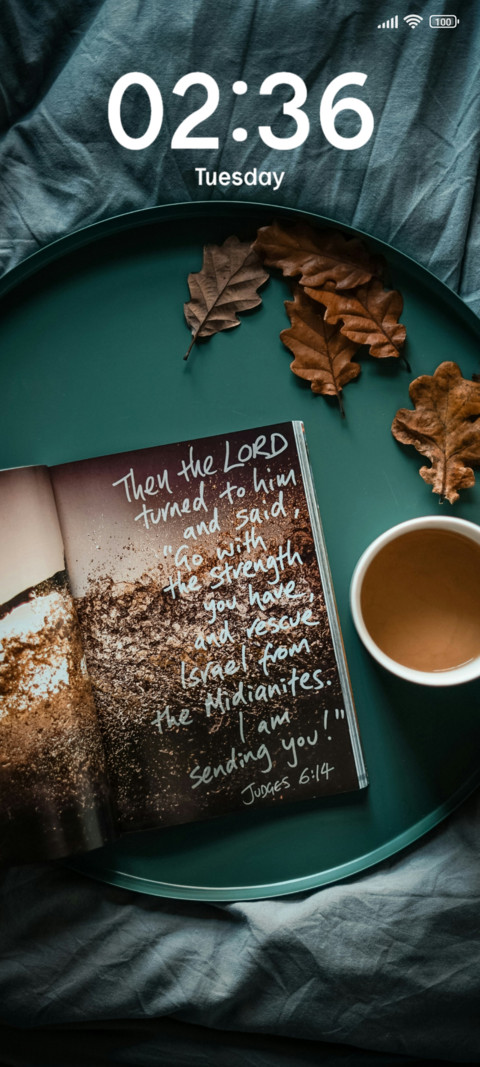 100
02:36
Tuesday
Then the LORD
turned to him
and said,
"Go with
the strength
you have,
and rescue
Israel from
the Midianites.
I am
sending you!"
JUDGES 6:14